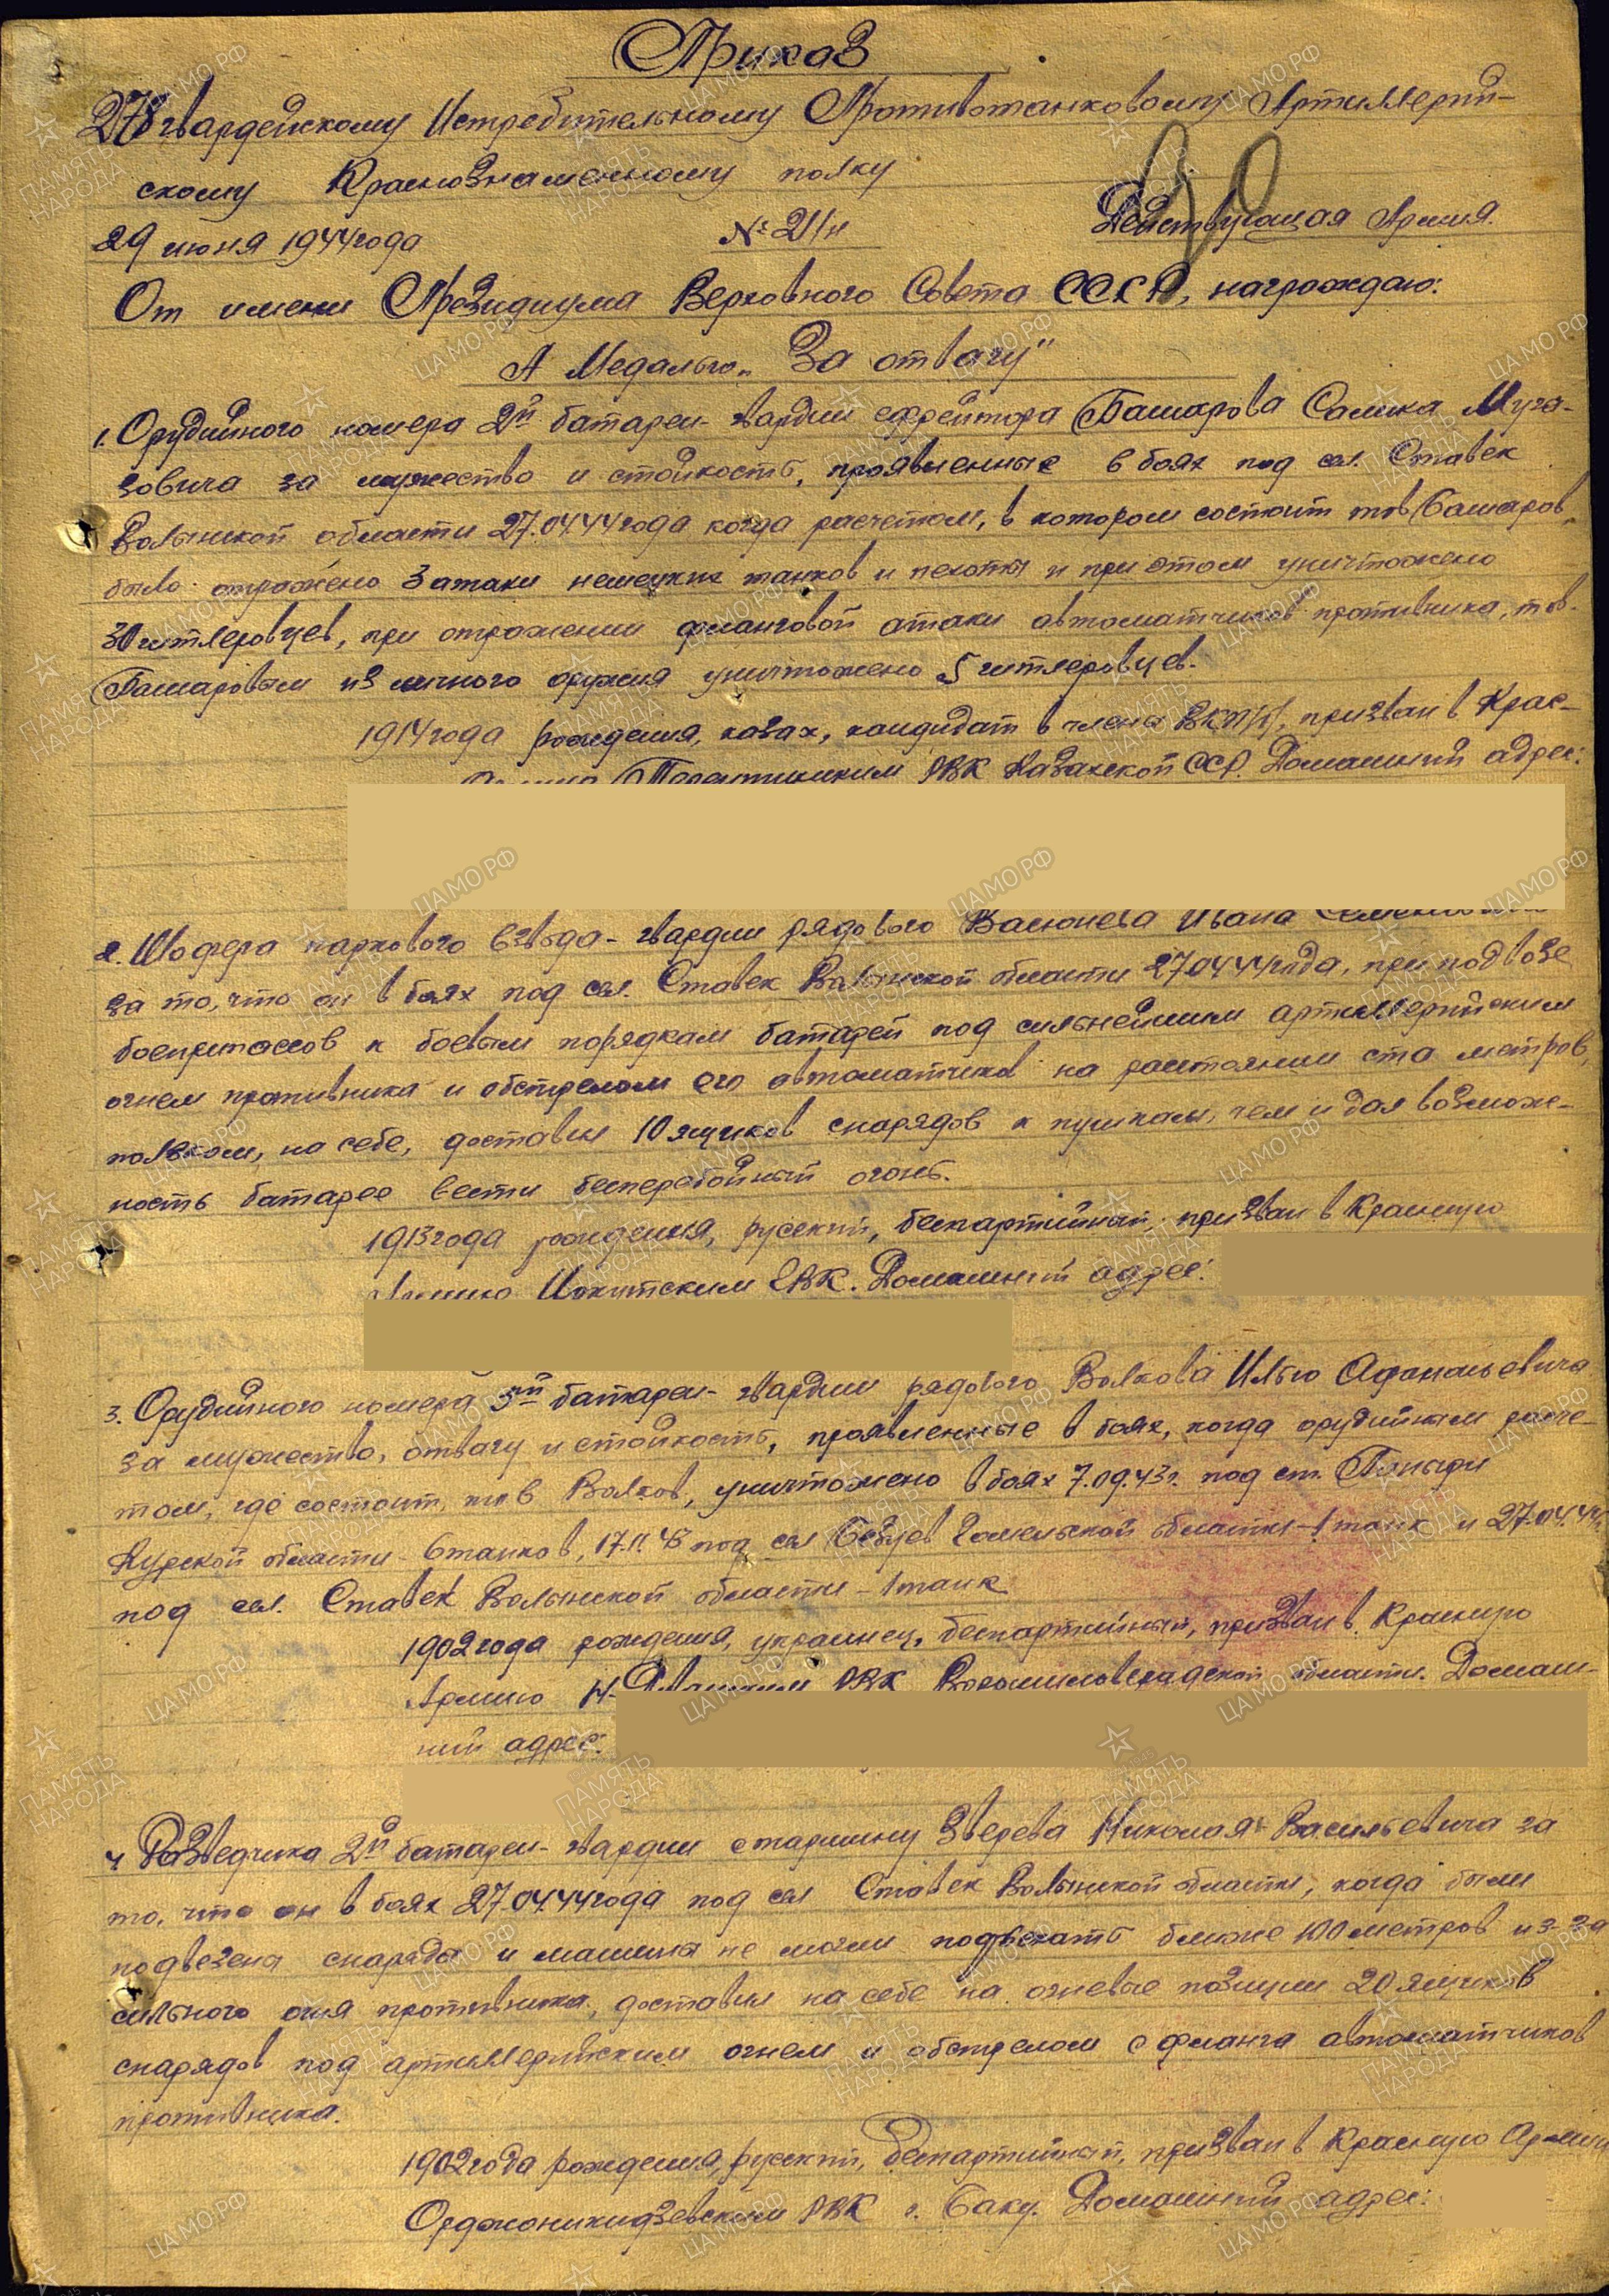 Приказ
278 гвардейскому Истребительному Противотанковому Артиллерий-
скому Краснознаменному полку
29 июня 1944 года № 21/н Действующая Армия.
От имени Президиума Верховного Совета СССР, награждаю:
А Медалью „За отвагу"
1. Орудийного номера 2й батареи - гвардии ефрейтора Башарова Салика Муга-
зовича за мужество и стойкость, проявленные в боях под сел. Ставек
Волынской области 27.04.44 года когда расчетом, в котором состоит тов Башаров,
было отражено 3 атаки немецких танков и пехоты и при этом уничтожено
30 гитлеровцев, при отражении фланговой атаки автоматчиков противника, тов.
Башаровым из личного оружия уничтожено 5 гитлеровцев.
1914 года рождения, казах, кандидат в члены ВКП/б/, призван в Крас-
РВК Казахской ССР. Домашний адрес:
2. Шофера паркового взвода - гвардии рядового Васюнева Ивана
за то, что он в боях под сел. Ставек Волынской области 27.04.44 года, при подвозе
боеприпасов к боевым порядкам батарей под сильнейшим артиллерийским
огнем противника и обстрелом его автоматчиков на расстоянии ста метров,
ползком, на себе, доставил 10 ящиков снарядов к пушкам, чем и дал возмож-
ность батарее вести бесперебойный огонь.
1913 года рождения, русский, беспартийный, призван в Красную
Армию РВК. Домашний адрес:
3. Орудийного номера 3й батареи - гвардии рядового Волкова Илью Афанасьевича
за мужество, отвагу и стойкость, проявленные в боях, когда орудийным расче-
том, где состоит, тов Волков, уничтожено в боях 7.09.43г. под ст. Поныри
Курской области - 6 танков, 17.11.43 под сел Гомельской области - 1 танк и 27.04.44г.
под сел. Ставек Волынской области - 1 танк
1902 года рождения, украинец, беспартийный, призван в Красную
Армию РВК Ворошиловградской области. Домаш-
ний адрес:
4 Разведчика 2й батареи - гвардии старшину Зверева Николая Васильевича за
то, что он в боях 27.04.44 года под сел Ставек Волынской области, когда были
подвезены снаряды и машины не могли подъехать ближе 100 метров из-за
сильного огня противника, доставил на себе на огневые позиции 20 ящиков
снарядов под артиллерийским огнем и обстрелом с фланга автоматчиков
противника.
1902 года рождения, русский, беспартийный, призван в Красную Армию
Орджоникидзевским РВК г. Баку. Домашний адрес: